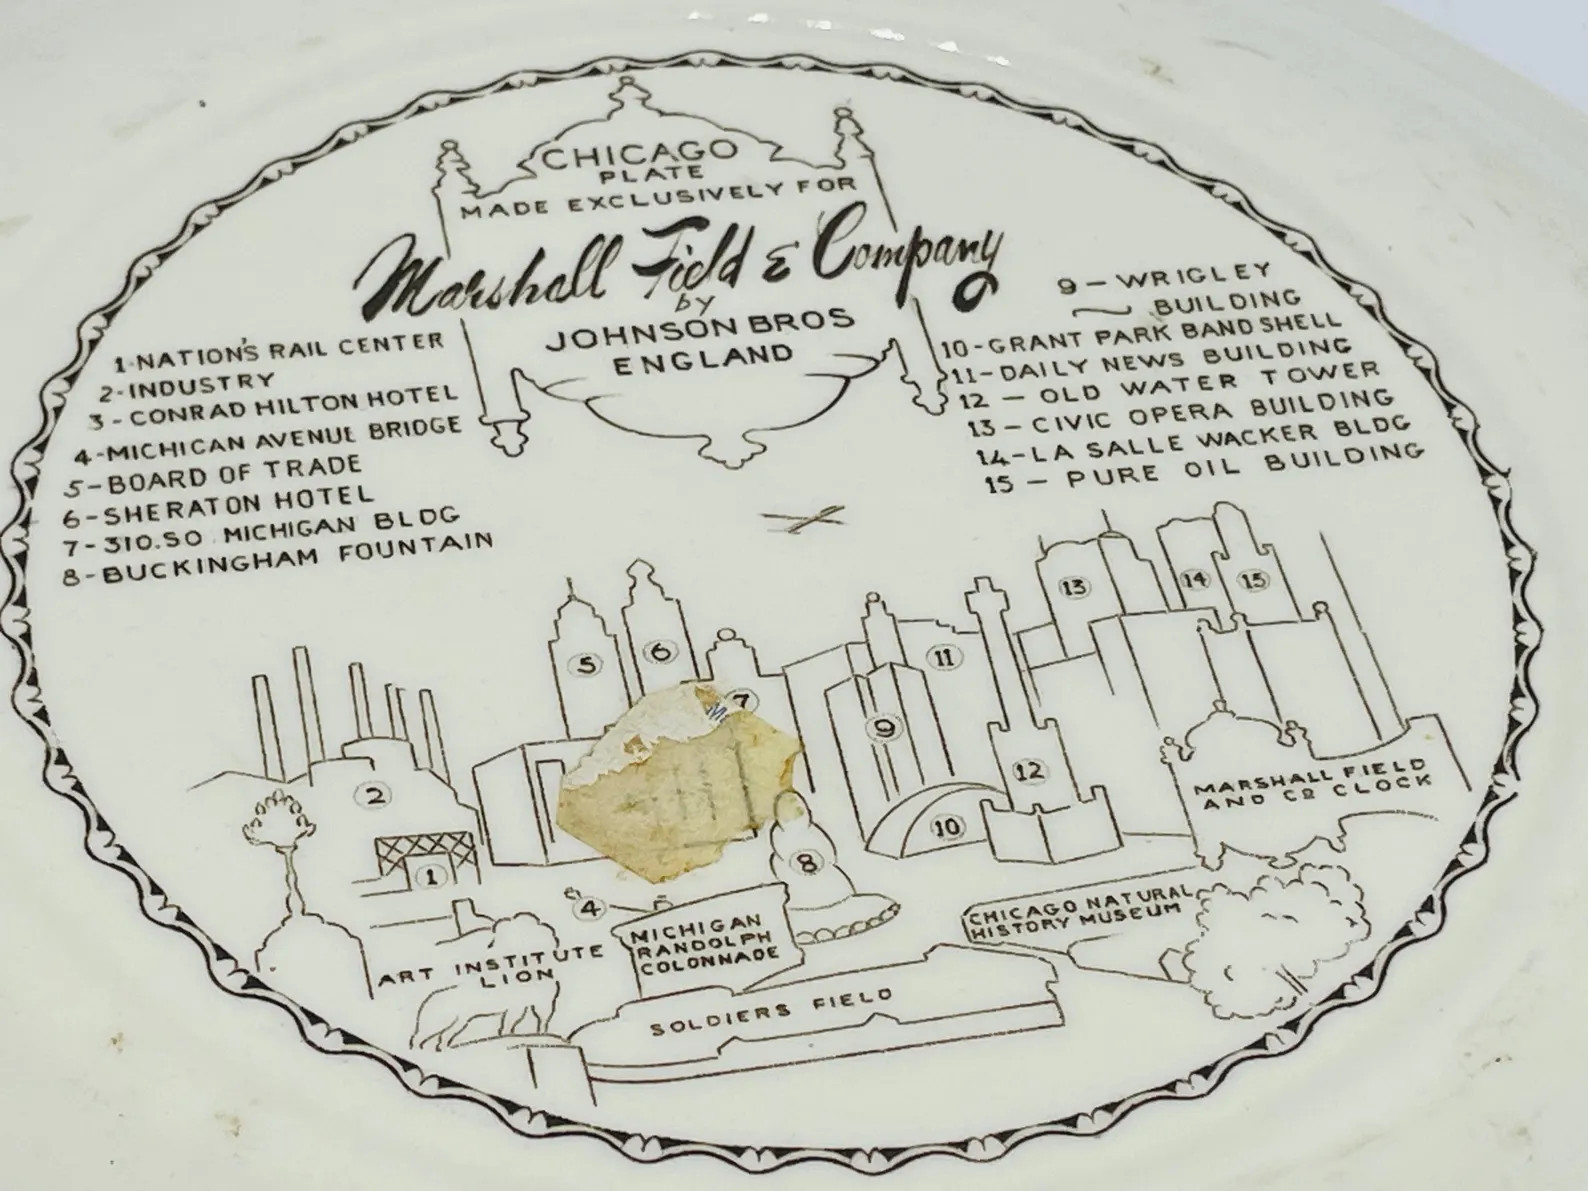 CHICAGO
PLATE
MADE EXCLUSIVELY FOR
Marshall Field & Company
by
JOHNSON BROS
ENGLAND
1-NATION'S RAIL CENTER
2-INDUSTRY
3-CONRAD HILTON HOTEL
4-MICHIGAN AVENUE BRIDGE
5-BOARD OF TRADE
6-SHERATON HOTEL
7-310.SO MICHIGAN BLDG
8-BUCKINGHAM FOUNTAIN
9-WRIGLEY
BUILDING
10-GRANT PARK BAND SHELL
11-DAILY NEWS BUILDING
12-OLD WATER TOWER
13-CIVIC OPERA BUILDING
14-LA SALLE WACKER BLDG
15-PURE OIL BUILDING
13
14
15
5
6
11
7
9
2
12
10
1
8
4
MARSHALL FIELD
AND CO CLOCK
CHICAGO NATURAL
HISTORY MUSEUM
MICHIGAN
RANDOLPH
COLONNADE
ART INSTITUTE
LION
SOLDIERS FIELD